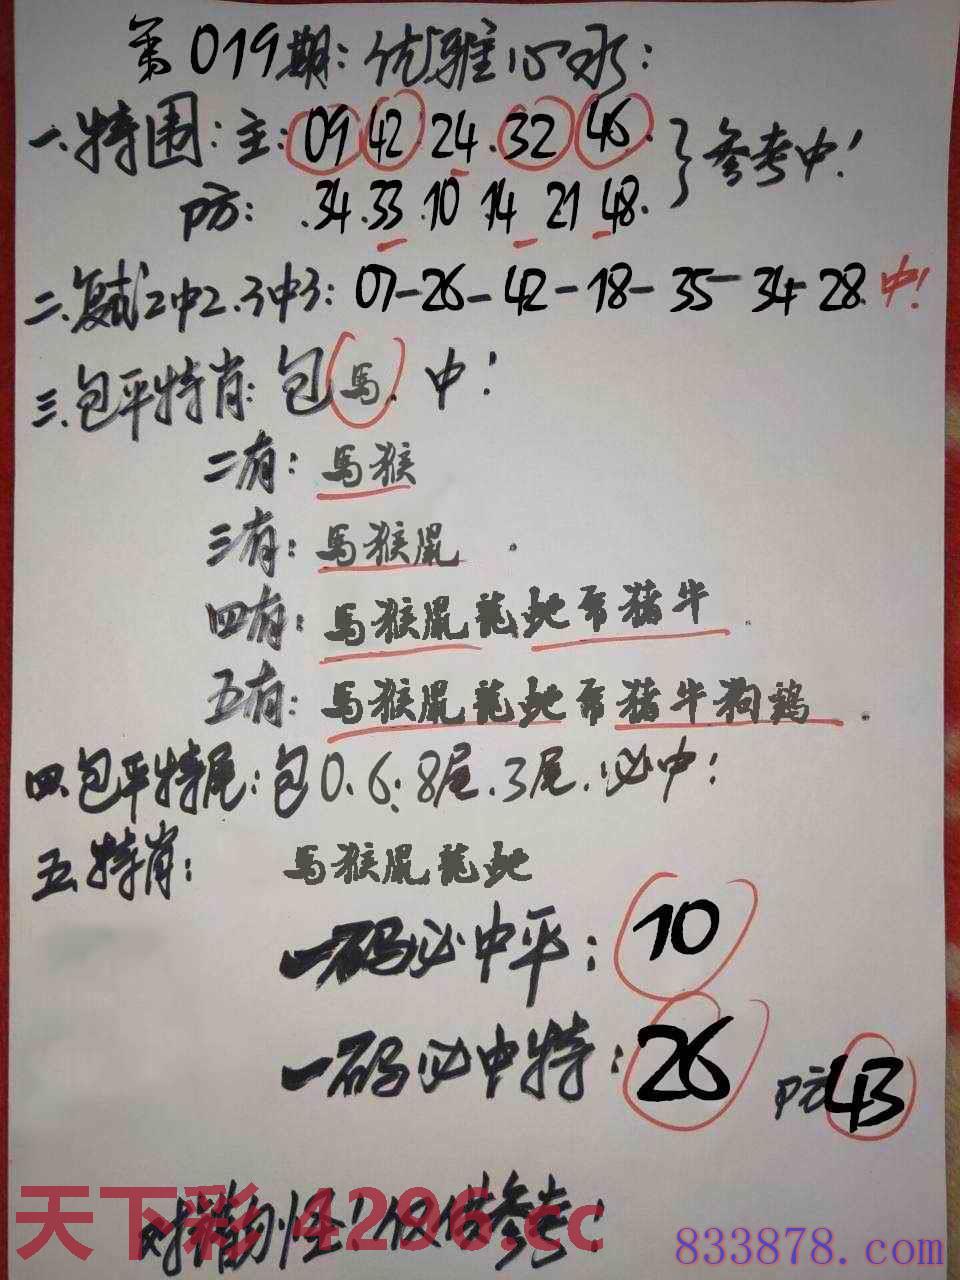 第019期:优雅心水:
一.特围:主:09 42.24.32 46.}参考中!
防: .34.33.10 14 21 48.
二.复式2中2.3中3:07-26-42-18-35-34-28.中!
三.包平特肖:包马.中!
二有:马猴
三有:马猴鼠.
四有:马猴鼠龙蛇虎猪牛.
五有:马猴鼠龙蛇虎猪牛狗鸡.
四.包平特尾:包0.6.8尾.3尾.必中!
五.特肖: 马猴鼠龙蛇
一码必中平:10
一码必中特:26 防43
天下彩 4296.cc
对错勿怪!仅供参考!
833878.com